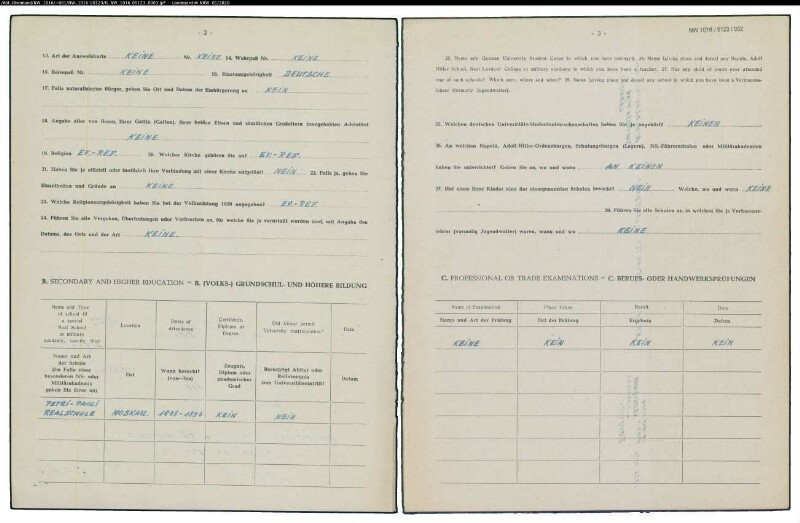 - 2 -
13. Art der Ausweiskarte KEINE Nr. KEINE 14. Wehrpaß Nr. KEINE
15. Reisepaß Nr. KEINE 16. Staatsangehörigkeit DEUTSCHE
17. Falls naturalisierter Bürger, geben Sie Ort und Datum der Einbürgerung an KEIN
18. Angabe aller von Ihnen, Ihrer Gattin (Gatten), Ihrer beiden Eltern und sämtlichen Großeltern innegehabten Adelstitel
KEINE
19. Religion EV.-REF. 20. Welcher Kirche gehören Sie an? EV.-REF.
21. Haben Sie je offiziell oder inoffiziell Ihre Verbindung mit einer Kirche aufgelöst? NEIN 22. Falls ja, geben Sie
Einzelheiten und Gründe an KEINE
23. Welche Religionsangehörigkeit haben Sie bei der Volkszählung 1939 angegeben? EV.-REF
24. Führen Sie alle Vergehen, Übertretungen oder Verbrechen an, für welche Sie je verurteilt worden sind, mit Angabe des
Datums, des Orts und der Art KEINE.
B. SECONDARY AND HIGHER EDUCATION – B. (VOLKS-) GRUNDSCHUL- UND HÖHERE BILDUNG
Name and Type of school (If a special Nazi School or military academy, specify this)
Location
Dates of attendence
Certificate, Diploma or Degree
Did Abitur permit University matriculation?
Date
Name und Art der Schule (Im Falle einer besonderen NS- oder Militärakademie geben Sie diese an)
Ort
Wann besucht? (von—bis)
Zeugnis, Diplom oder akademischer Grad
Berechtigt Abitur oder Reifezeugnis zum Universitätseintritt?
Datum
PETRI-PAULI
REALSCHULE MOSKAU. KEIN NEIN
- 3 -
NW 1016 / 6123 / 002
25. Name any German University Student Corps to which you have belonged. 26. Name (giving place and dates) any Napola, Adolf
Hitler School, Nazi Leaders' College or military academy in which you have been a teacher. 27. Has any child of yours ever attended
any of such schools? Which ones, where and when? 28. Name (giving place and dates) any school in which you have been a Vertrauens-
lehrer (formerly Jugendwalter).
25. Welchen deutschen Universitäts-Studentenburschenschaften haben Sie je angehört? KEINEN
26. An welchen Napola, Adolf-Hitler-Ordensburgen, Schulungsburgen (Lagern), NS.-Führerschulen oder Militärakademien
haben Sie unterrichtet? Geben Sie an, wo und wann AN KEINEN
27. Hat eines Ihrer Kinder eine der obengenannten Schulen besucht? NEIN Welche, wo und wann KEINE
28. Führen Sie alle Schulen an, in welchen Sie je Vertrauens-
lehrer (vormalig Jugendwalter) waren, wann und wo KEINE.
C. PROFESSIONAL OR TRADE EXAMINATIONS – C. BERUFS- ODER HANDWERKSPRÜFUNGEN
Name of Examination Place Taken Result Date
Name und Art der Prüfung Ort der Prüfung Ergebnis Datum
KEINE KEIN KEIN KEIN